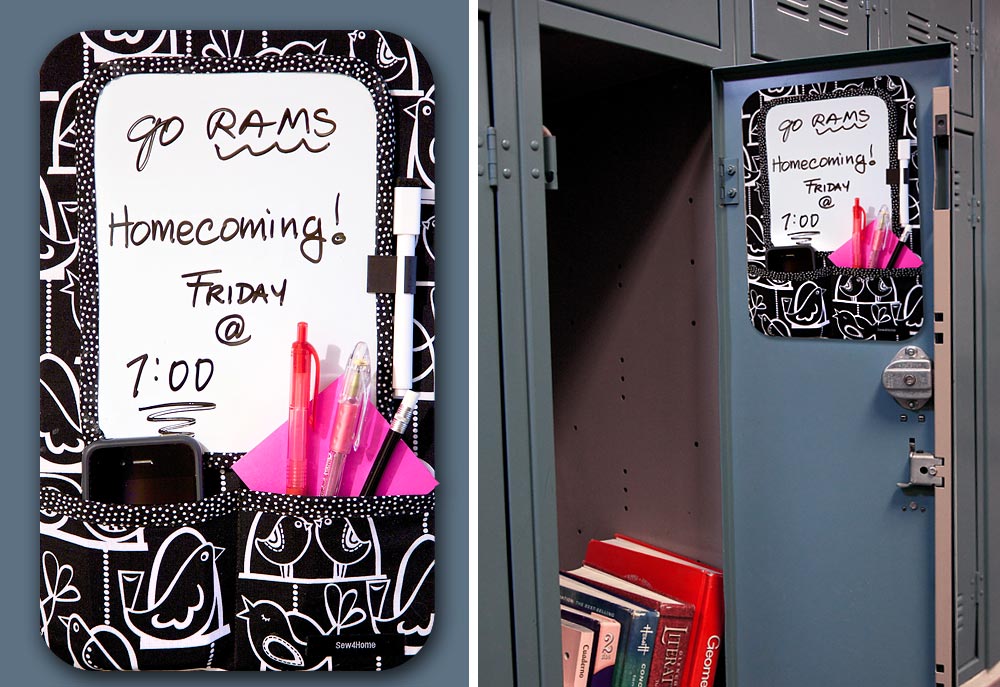 go RAMS
Homecoming!
FRIDAY
@
7:00
Sew4Home
go RAMS
Homecoming!
FRIDAY
@
7:00
Cuaderno
2
LITERATURE
Geome